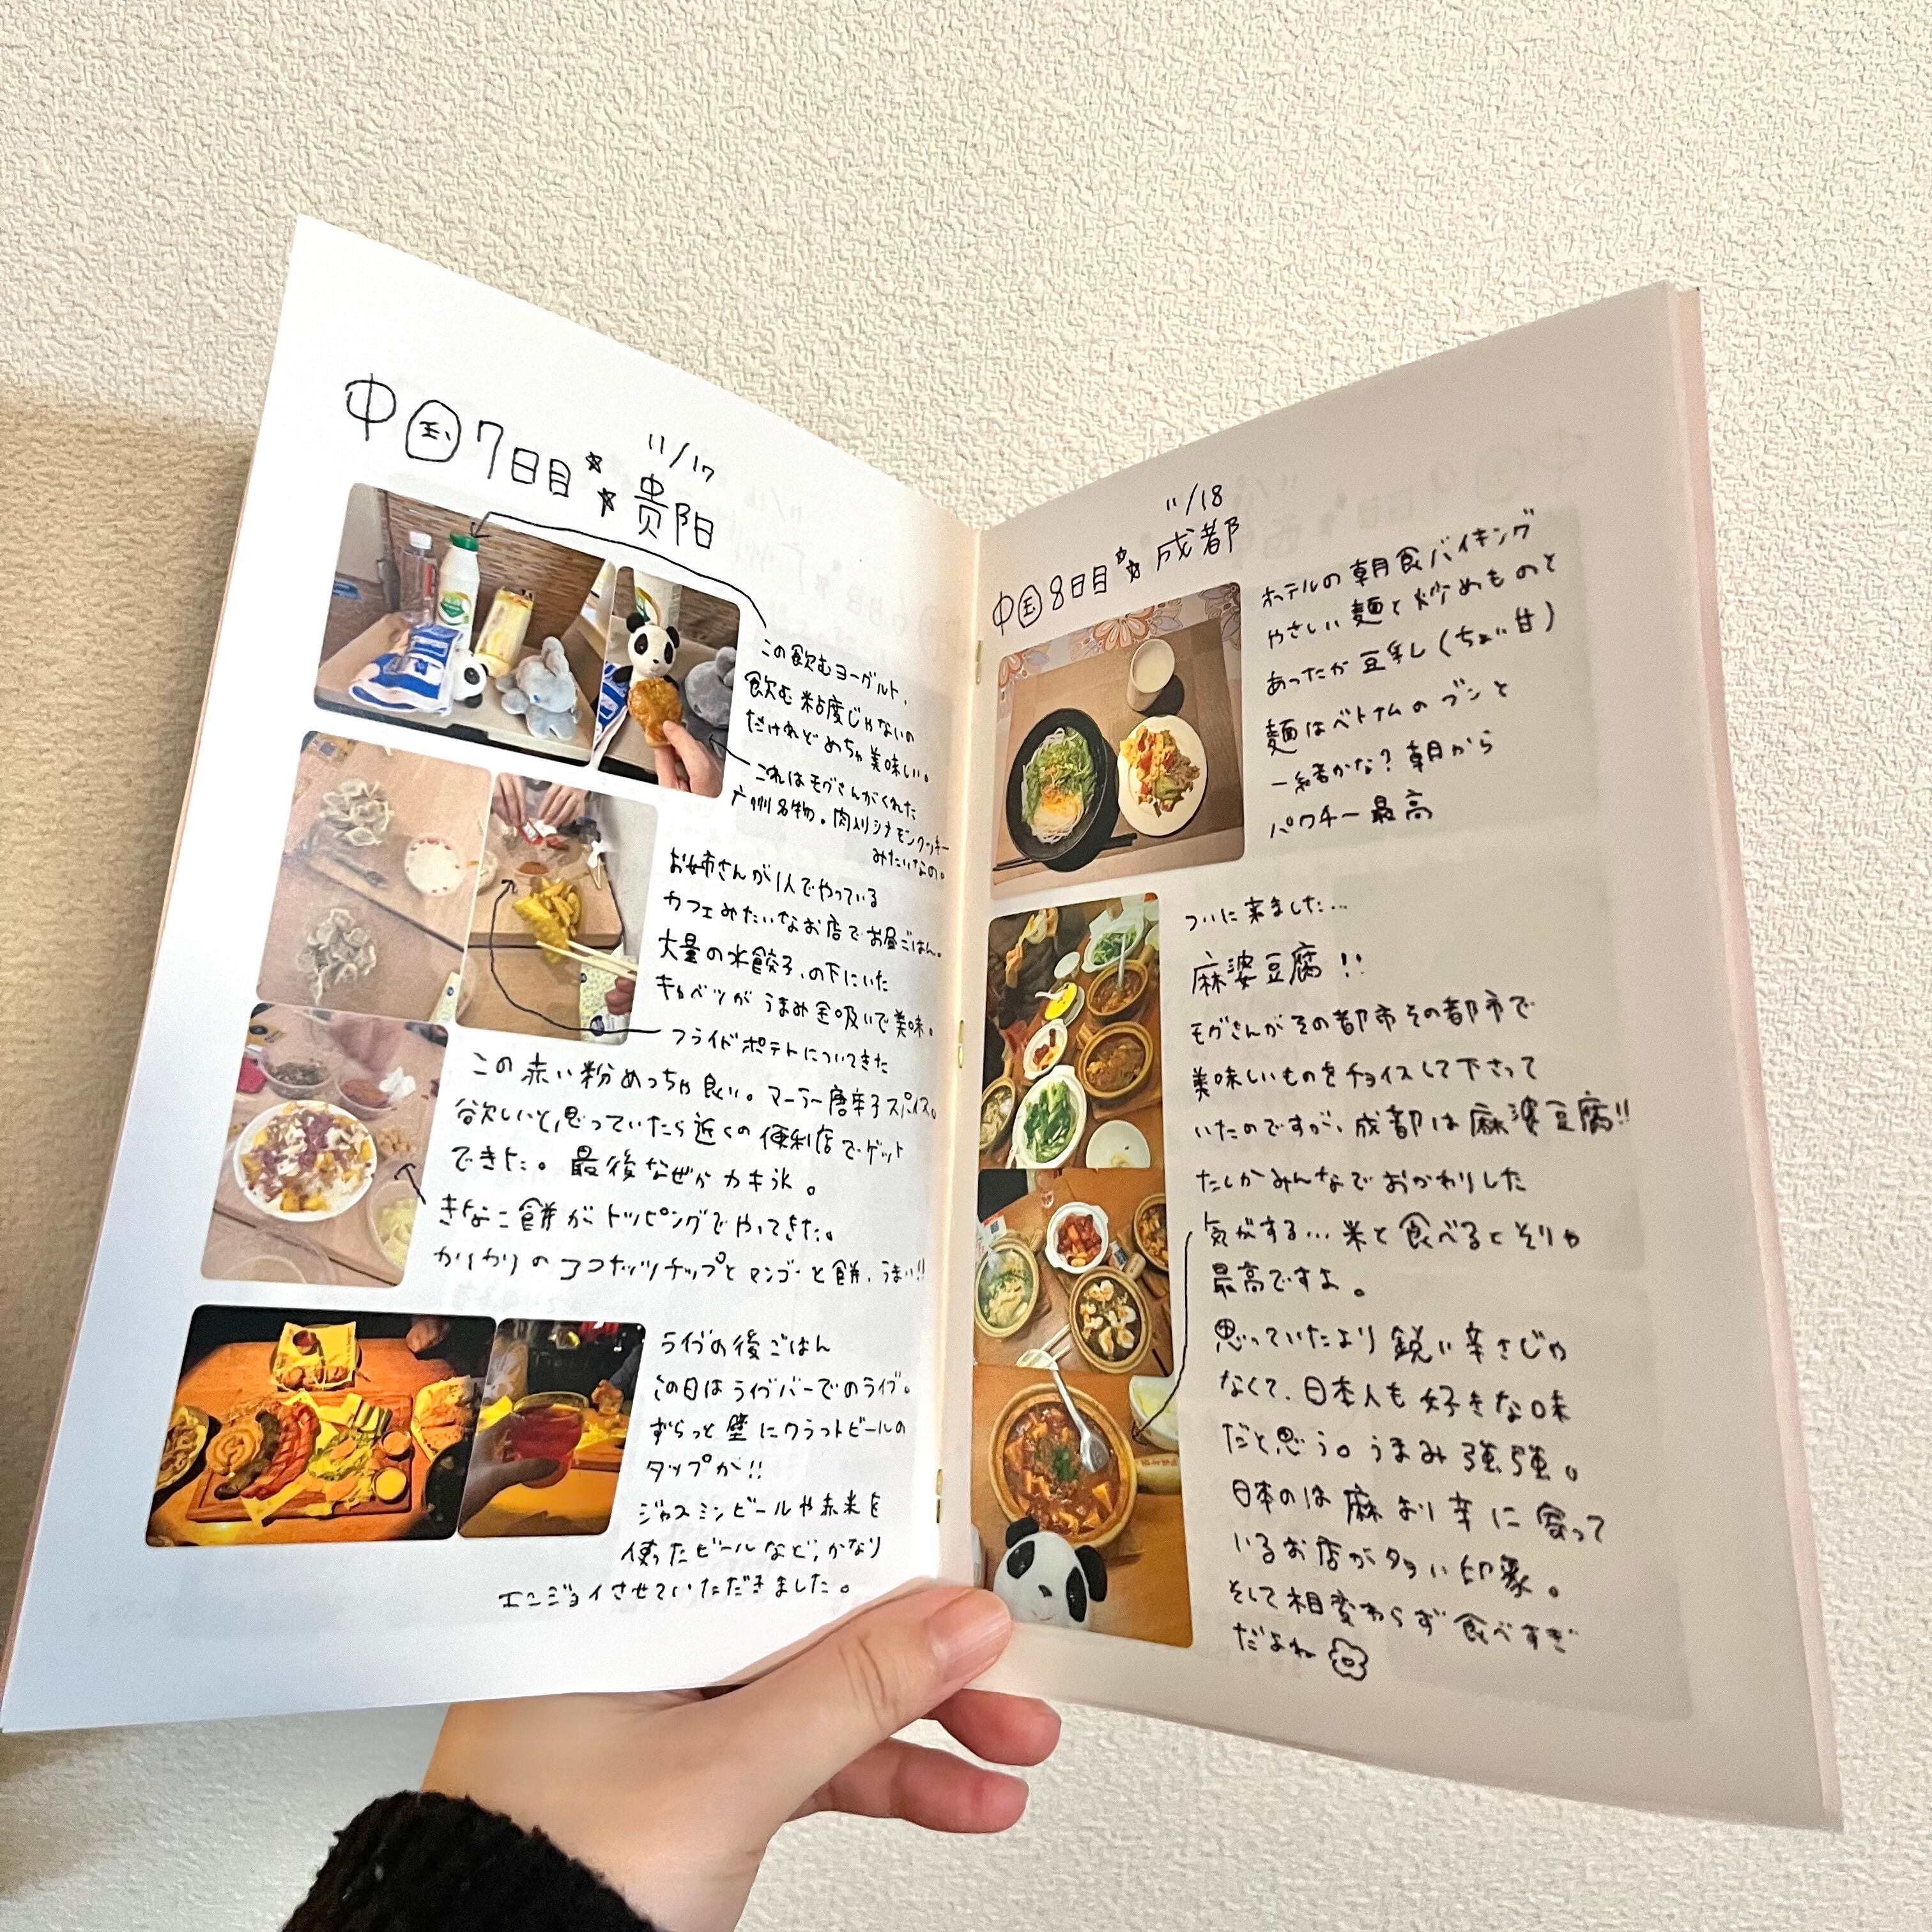 中国7日目
11/17
貴阳
この飲むヨーグルト、
飲む粘度じゃないの
だけれどめちゃ美味しい。
これはモグさんがくれた
广州名物。肉入りシナモンクッキー
みたいなの。
お姉さんが1人でやっている
カフェみたいなお店でお昼ごはん。
大量の水餃子、の下にいた
キャベツがうまみ全吸いで美味。
フライドポテトについてきた
この赤い粉めっちゃ良い。マーラー唐辛子スパイス。
欲しいと思っていたら近くの便利店でゲット
できた。最後なぜかカキ氷。
きなこ餅がトッピングでやってきた。
かりかりのココナッツチップとマンゴーと餅、うまい!!
ライヴの後ごはん
この日はライヴバーでのライヴ。
ずらっと壁にクラフトビールの
タップが!!
ジャスミンビールや赤米を
使ったビールなど、かなり
エンジョイさせていただきました。
11/18
中国8日目 成都
ホテルの朝食バイキング
やさしい麺と炒めものと
あったか豆乳(ちょい甘)
麺はベトナムのブンと
一緒かな?朝から
パクチー最高
ついに来ました…
麻婆豆腐!!
モグさんがその都市その都市で
美味しいものをチョイスして下さって
いたのですが、成都は麻婆豆腐!!
たしかみんなでおかわりした
気がする…米と食べるとそりゃ
最高ですよ。
思っていたより鋭い辛さじゃ
なくて、日本人も好きな味
だと思う。うまみ強強。
日本のは麻より辛に寄って
いるお店が多い印象。
そして相変わらず食べすぎ
だよね